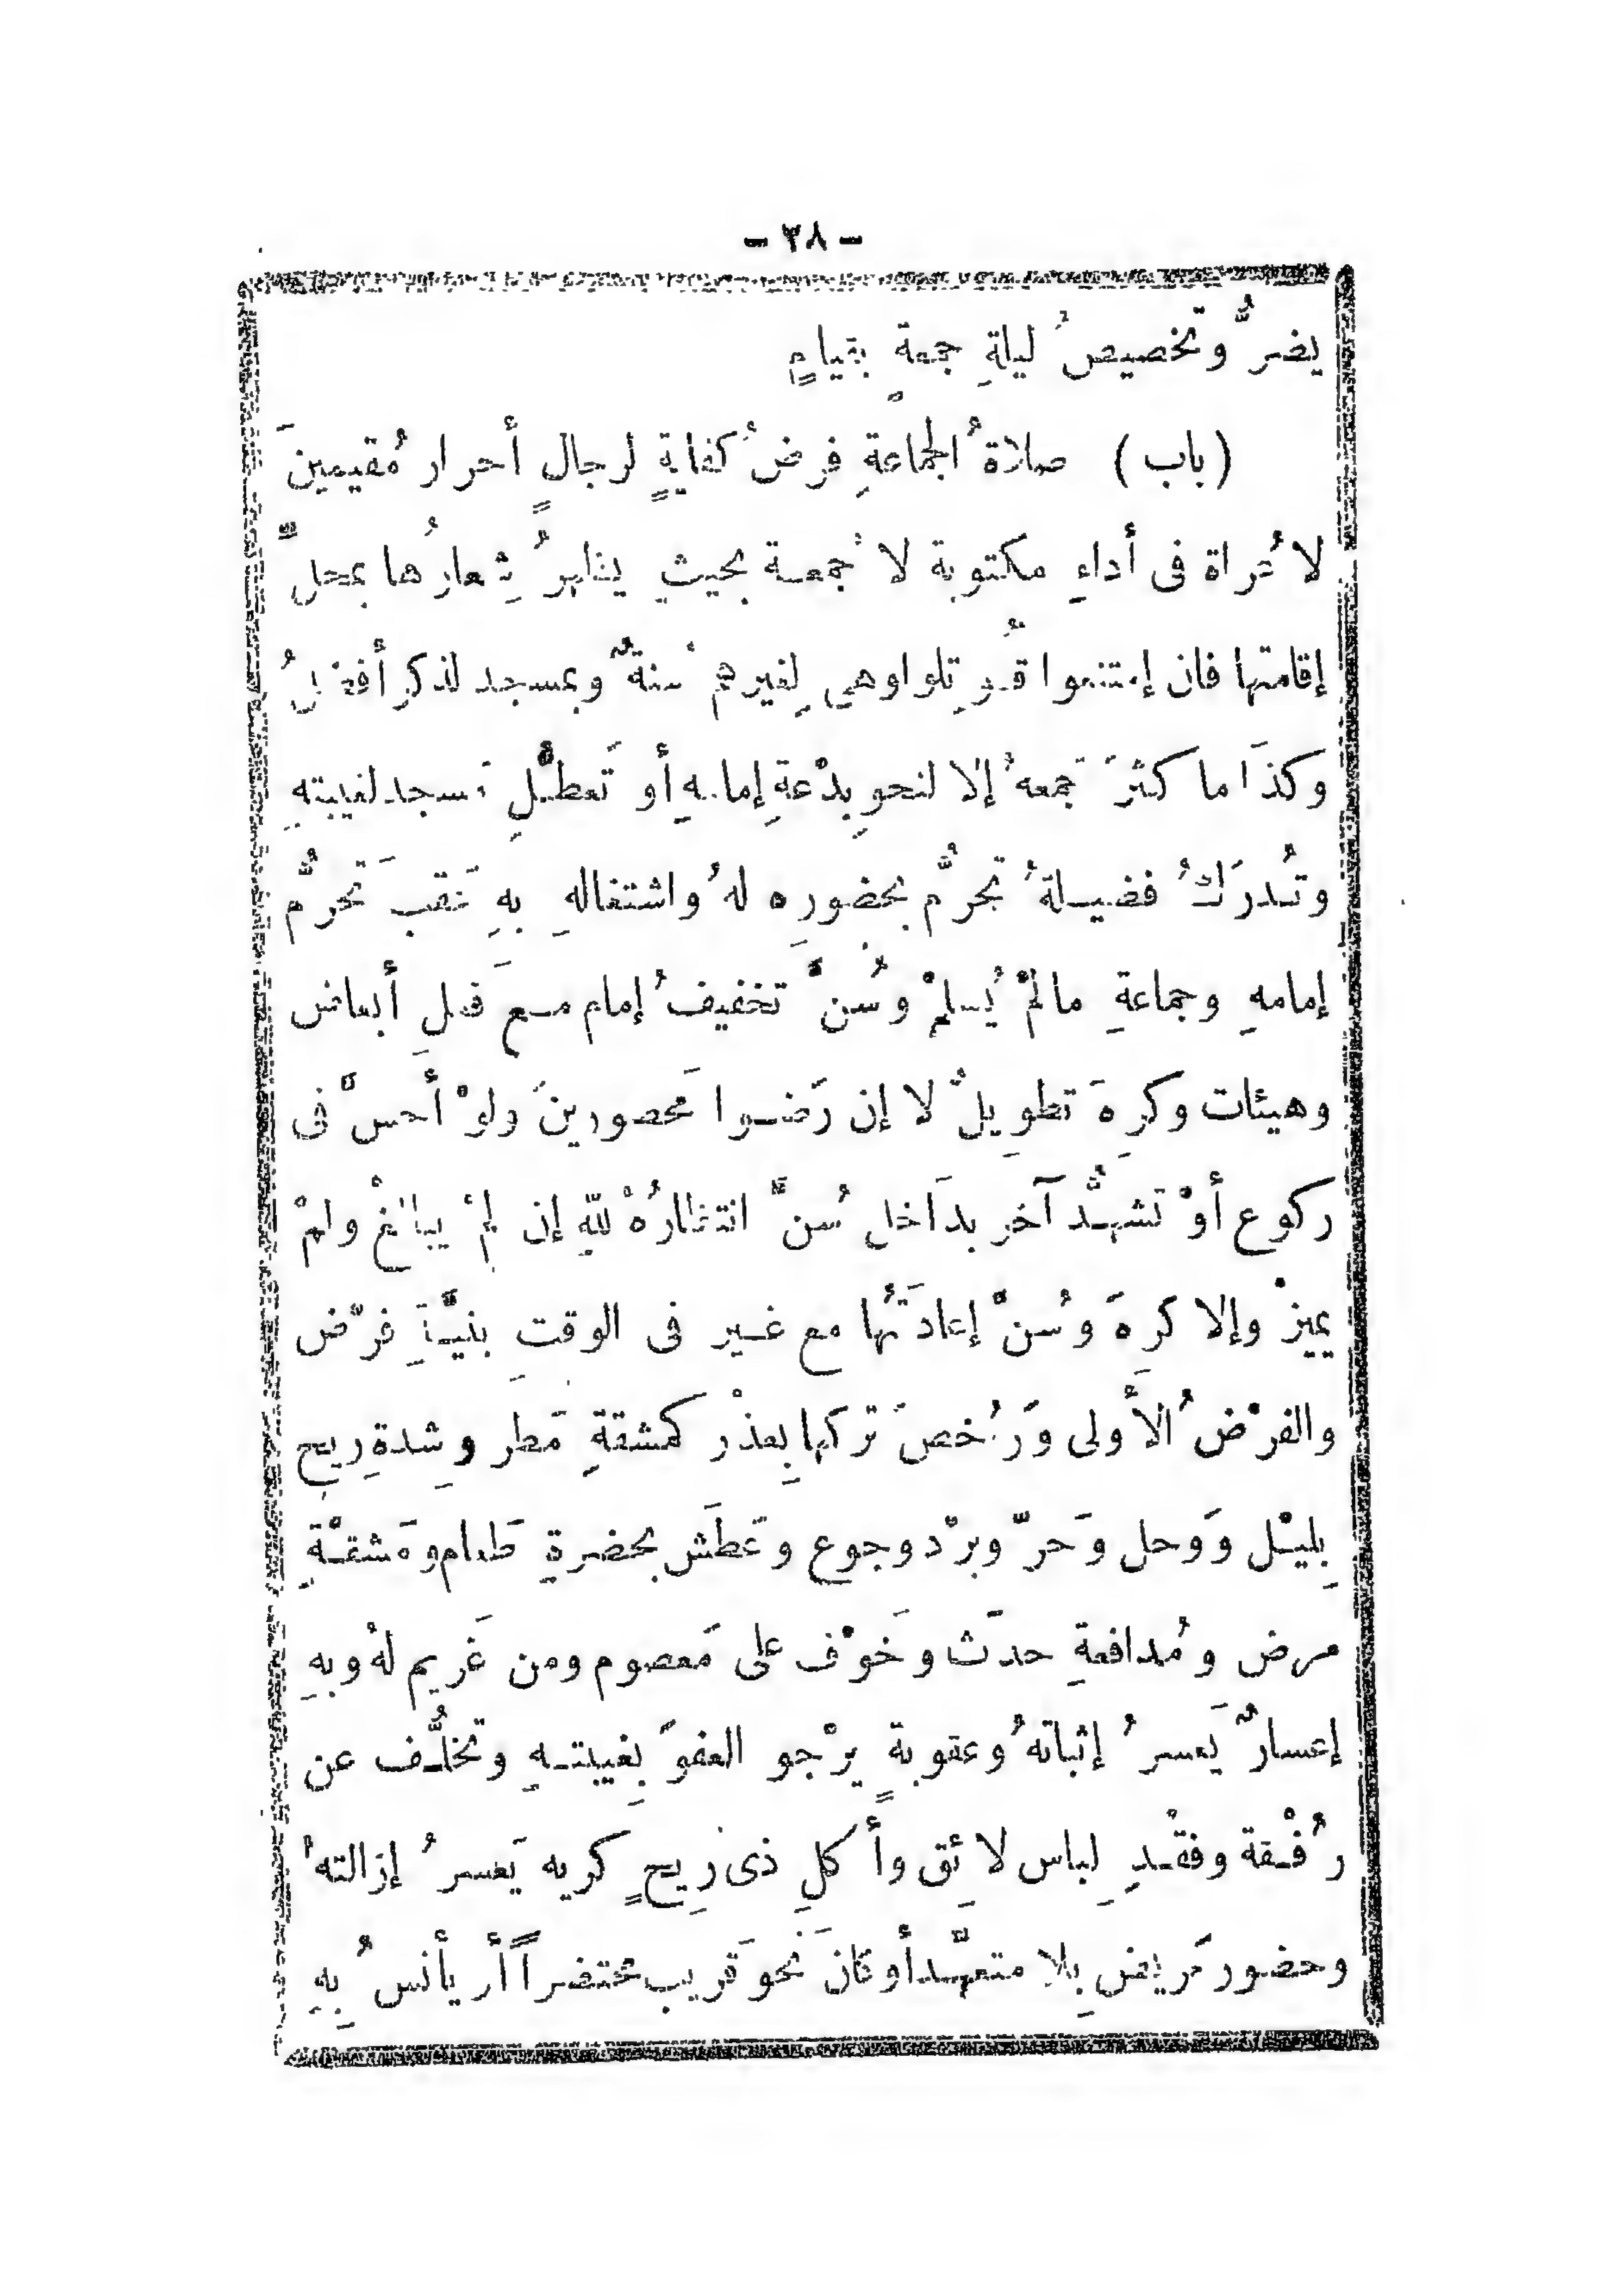 - ٣٨ -
يضرُّ وتخصيصُ ليلةِ جمعةٍ بقيامٍ
(باب) صلاةُ الجماعةِ فرضُ كفايةٍ لرجالٍ أحرار مُقيمينَ
لا عُراة فى أداءِ مكتوبة لا جمعة بحيثِ يظهرُ شِعارُها بمحلِّ
إقامتها فان إمتنعوا قُوتِلوا وهى لِغيرهم سنةٌ وبمسجد لذكرِ أفضلُ
وكذَا ما كثرَ جَمعهُ إلا لنحوِ بدْعةِ إمامهِ أو تَعطْلِ مَسجد لغيبتهِ
وتُدرَكُ فضيلةُ تحرُّم بحضورِه لهُ واشتغالهِ بهِ عَقبَ تَحرُّم
إمامهِ وجماعةِ مالمْ يُسلمْ وسُنَّ تخفيفُ إمام مع فعلِ أبعاض
وهيئات وكرِهَ تطويلٌ لا إن رَضوا مَحصورينَ ولوْ أحسَّ فى
ركوع أوْ تشهُّد آخر بدَاخل سُنَّ انتظارُهْ للهِ إن لمْ يبالغْ ولمْ
يميزْ وإلا كرِهَ وسُنَّ إعادَتُها مع غير فى الوقتِ بنيَّةِ فرْض
والفرْضُ الأولى وَرُخصَ تركها بِعذْر كمشقةِ مَطر وشدةِ ريح
بِليْل وَوحل وَحرّ وبرْد وجوع وعَطَش بحضرةِ طَعام ومَشقةِ
مرض ومُدافعةِ حدَث وخَوْف على مَعصوم ومن غَريم لهُ وبهِ
إعسارٌ يَعسرُ إثباتهُ وعقوبةٍ يرْجو العفوَ بِغيبتهِ وتخلُّف عن
رُفْقة وفقْدِ لباس لائِق وأكلِ ذى رِيحٍ كريه يَعسرُ إزالتهُ
وحضور مَريض بِلا متعهّد أو كانَ نحوَ قَريب محتضراً أو يأنسُ بِهِ